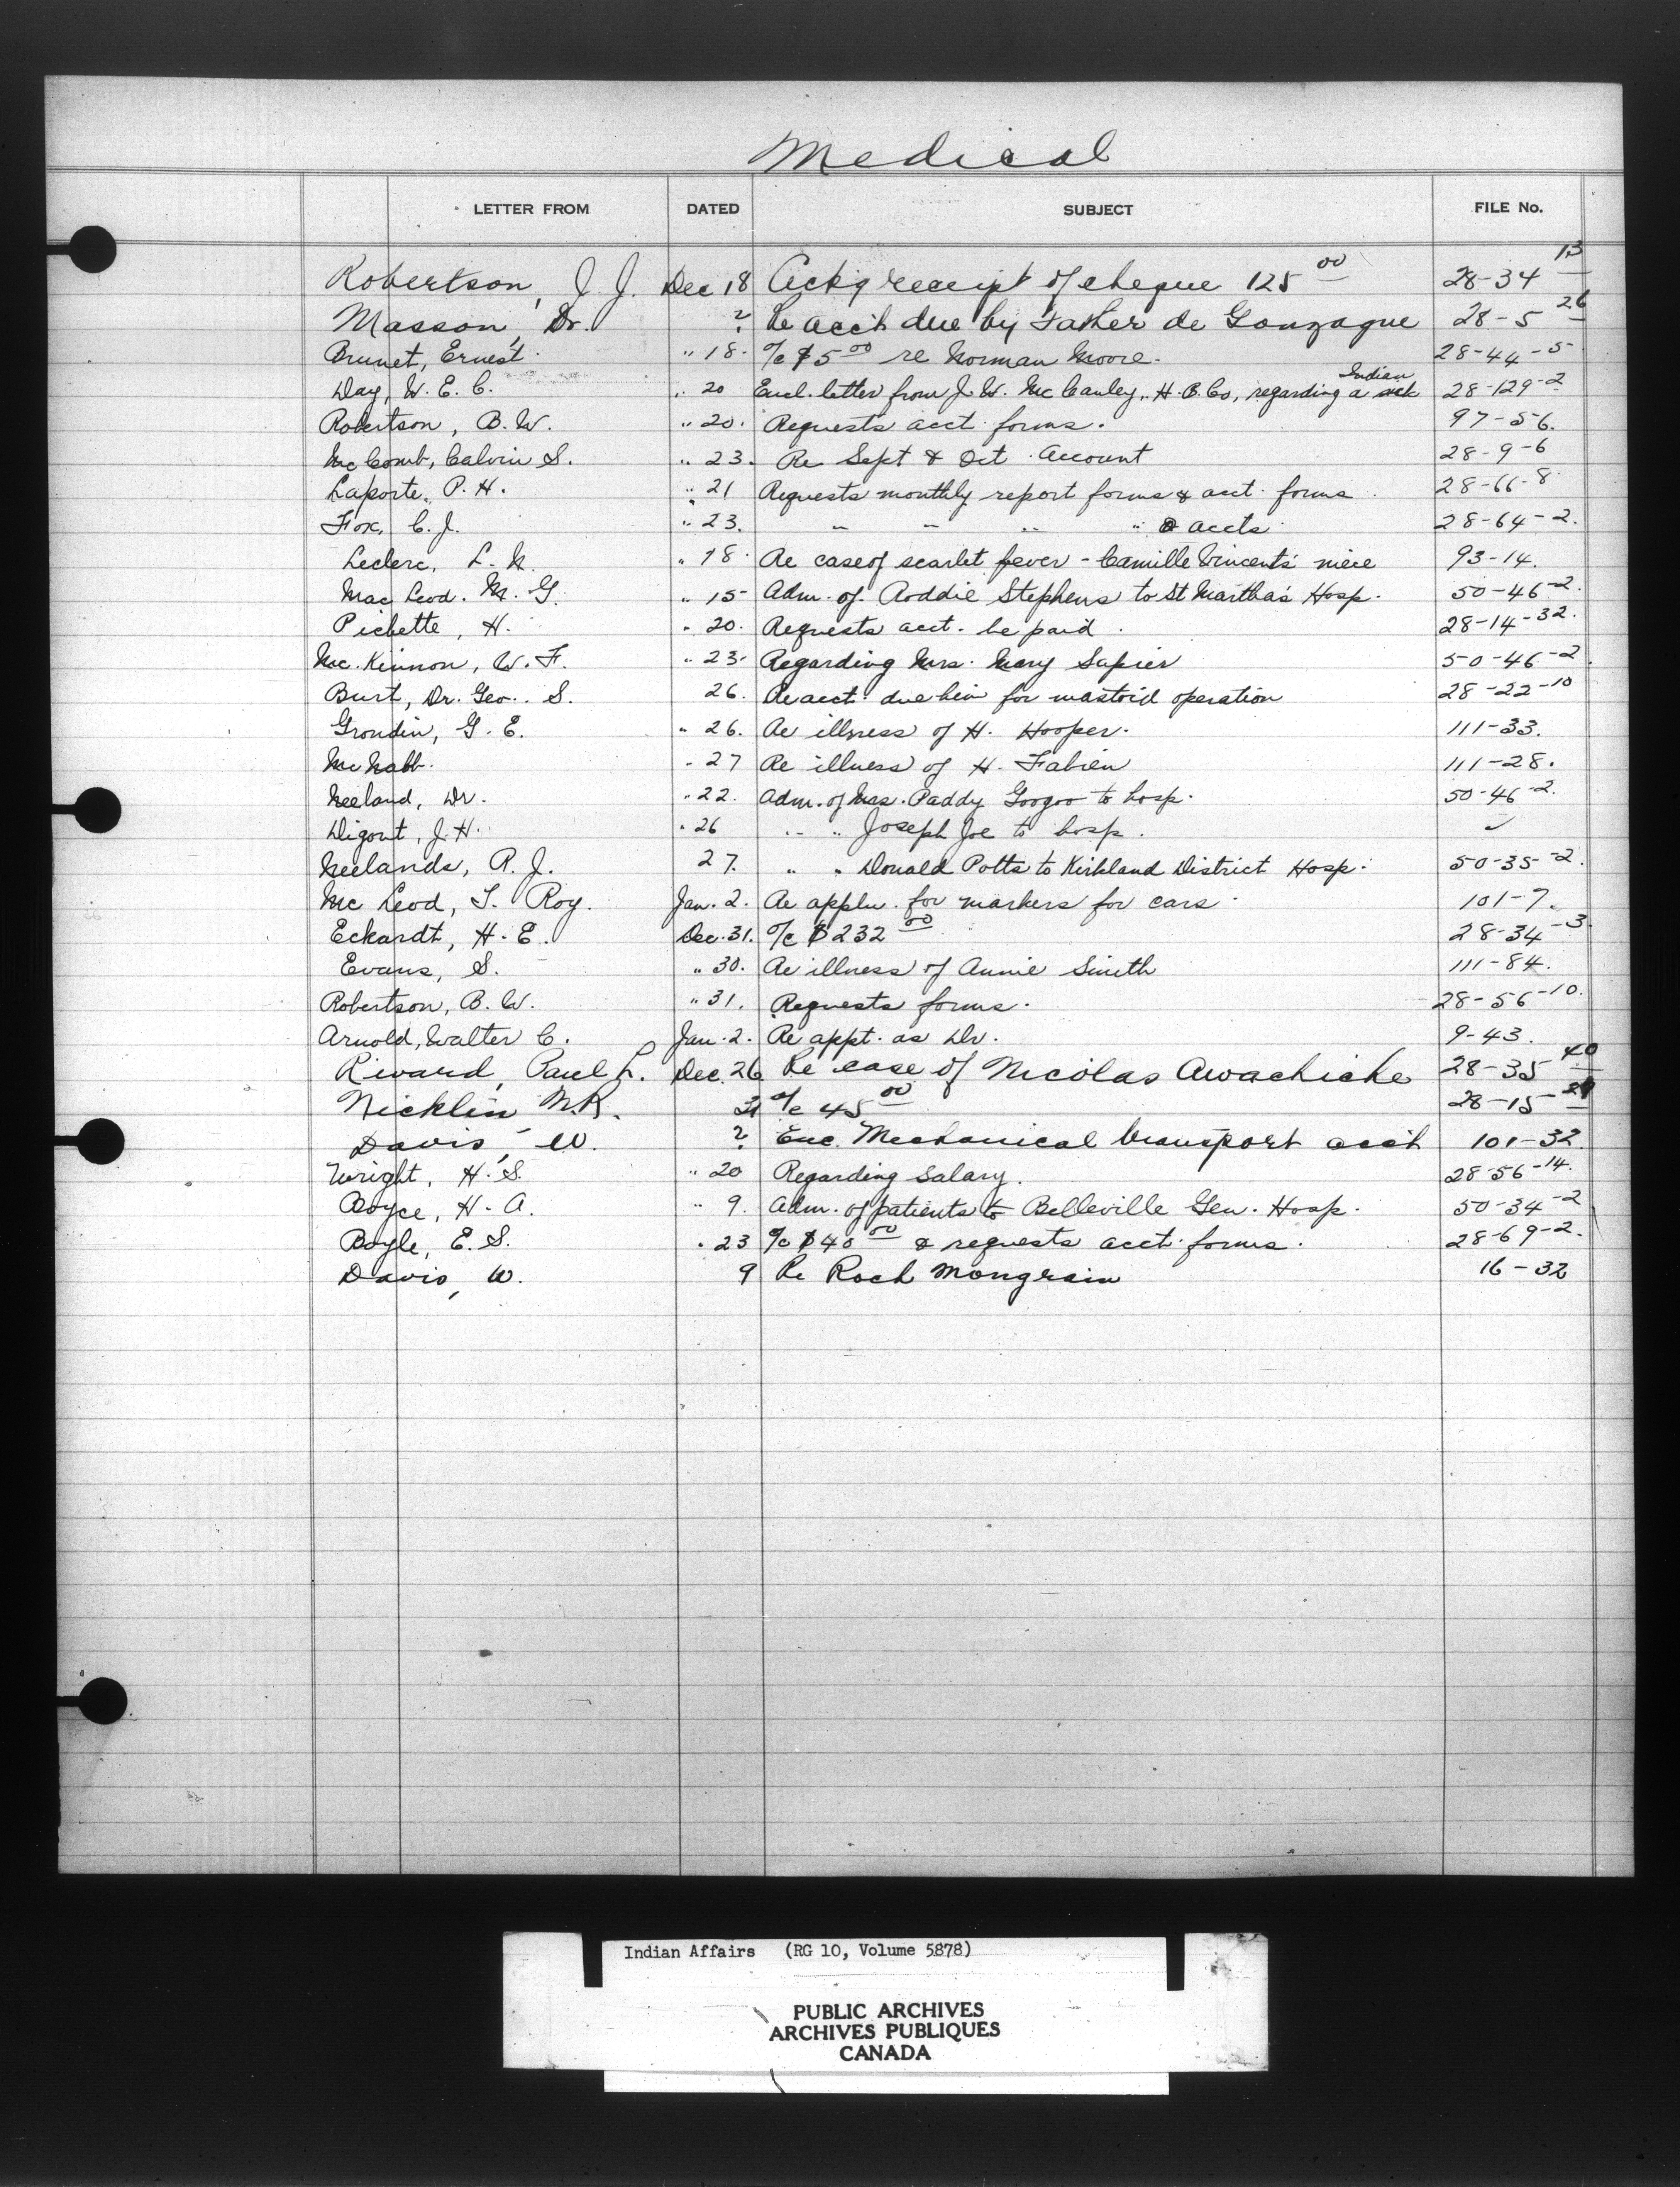 Medical
LETTER FROM DATED SUBJECT FILE No.
Robertson, J. J. Dec 18 Ackg receipt of cheque 125 00 28-34 13
Masson, Dr. ? Re acc't due by Father de Gonzague 28-5 26
Brunet, Ernest. " 18. a/c $5 00 re Norman Moore. 28-44-5
Day, W. E. C. " 20 Encl. letter from J. W. McCauley, H. B. Co, regarding a sick Indian 28-129-2
Robertson, B. W. " 20. Requests acct forms. 97-56.
McComb, Calvin S. " 23. Re Sept & Oct Account 28-9-6
Laporte, P. H. " 21 Requests monthly report forms & acct. forms 28-66-8
Fox, C. J. " 23. " " " " & accts 28-64-2.
Leclerc, L. N. " 18. Re case of scarlet fever - Camille Vincent's niece 93-14.
Mac Leod. M. G. " 15 Adm. of Roddie Stephens to St Martha's Hosp. 50-46-2.
Pichette, H. " 20. Requests acct. be paid. 28-14-32.
Mc. Kinnon, W. F. " 23. Regarding Mrs. Mary Sapier 50-46-2
Burt, Dr. Geo. S. 26. Re acct. due him for mastoid operation 28-22-10
Grondin, G. E. " 26. Re illness of H. Hooper. 111-33.
McNabb. " 27 Re illness of H. Fabien 111-28.
Neeland, Dr. " 22. Adm. of Mrs. Paddy Googoo to hosp. 50-46-2.
Digout, J. H. " 26 " " Joseph Joe to hosp. ✓
Neelands, R. J. 27. " " Donald Potts to Kirkland District Hosp. 50-35-2.
Mc Leod, T. Roy. Jan. 2. Re appln. for markers for cars. 101-7.
Eckardt, H. E. Dec. 31. a/c $232 00 28-34-3.
Evans, S. " 30. Re illness of Annie Smith 111-84.
Robertson, B. W. " 31. Requests forms. 28-56-10.
Arnold, Walter C. Jan. 2. Re appt. as Dr. 9-43.
Rivard, Paul L. Dec. 26 Re case of Nicolas Awachiche 28-35 40
Nicklin, N. R. 31 a/c 45 00 28-15
Davis, W. ? Enc. Mechanical transport acc't 101-32
Wright, H. S. " 20 Regarding salary. 28-56-14.
Boyce, H. A. " 9. Adm. of patients to Belleville Gen. Hosp. 50-34-2
Boyle, E. S. " 23 a/c $40 00 & requests acct. forms. 28-69-2.
Davis, W. 9 Re Roch Mongrain 16-32
Indian Affairs (RG 10, Volume 5878)
PUBLIC ARCHIVES
ARCHIVES PUBLIQUES
CANADA